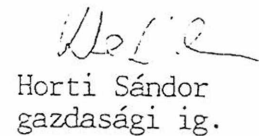 Horti Sándor
gazdasági ig.